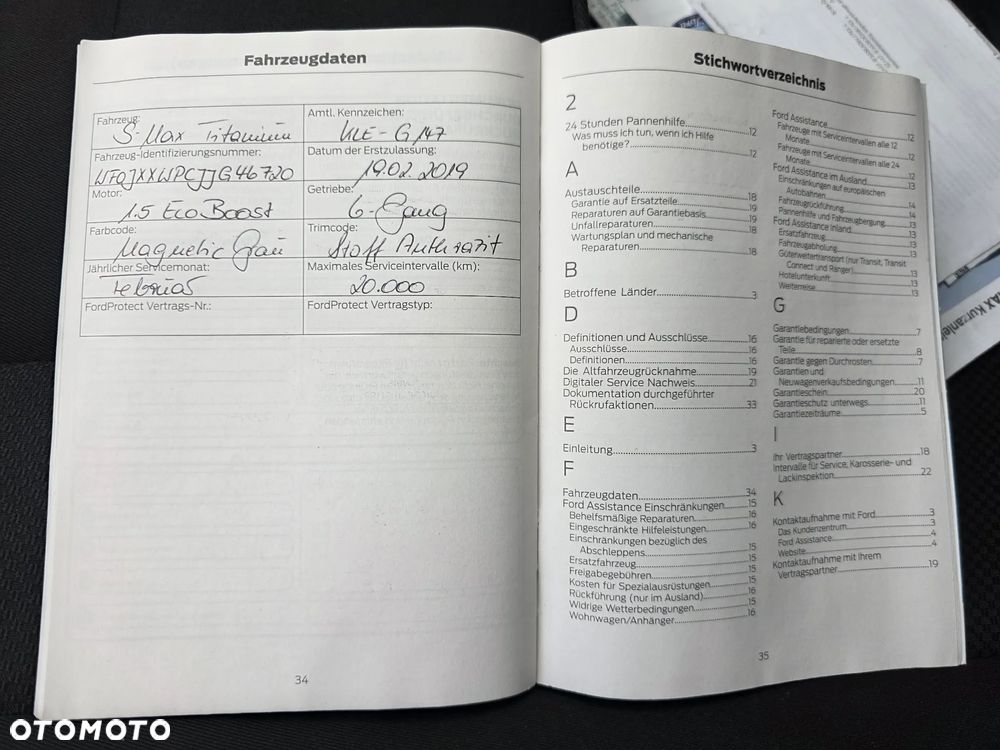 Fahrzeugdaten
Fahrzeug:
S-Max Titanium
Amtl. Kennzeichen:
KLE-G 147
Fahrzeug-Identifizierungsnummer:
WF0JXXWPCJJG46720
Datum der Erstzulassung:
19.02.2019
Motor:
1.5 EcoBoost
Getriebe:
6-Gang
Farbcode:
Magnetic Grau
Trimcode:
Stoff Anthrazit
Jährlicher Servicemonat:
Februar
Maximales Serviceintervalle (km):
20.000
FordProtect Vertrags-Nr.:
FordProtect Vertragstyp:
34
Stichwortverzeichnis
2
24 Stunden Pannenhilfe.....12
Was muss ich tun, wenn ich Hilfe
benötige?.....12
A
Austauschteile.....18
Garantie auf Ersatzteile.....19
Reparaturen auf Garantiebasis.....19
Unfallreparaturen.....18
Wartungsplan und mechanische
Reparaturen.....18
B
Betroffene Länder.....3
D
Definitionen und Ausschlüsse.....16
Ausschlüsse.....16
Definitionen.....16
Die Altfahrzeugrücknahme.....19
Digitaler Service Nachweis.....21
Dokumentation durchgeführter
Rückrufaktionen.....33
E
Einleitung.....3
F
Fahrzeugdaten.....34
Ford Assistance Einschränkungen.....15
Behelfsmäßige Reparaturen.....16
Eingeschränkte Hilfeleistungen.....16
Einschränkungen bezüglich des
Abschleppens.....15
Ersatzfahrzeug.....15
Freigabegebühren.....15
Kosten für Spezialausrüstungen.....15
Rückführung (nur im Ausland).....16
Widrige Wetterbedingungen.....15
Wohnwagen/Anhänger.....16
Ford Assistance.....12
Fahrzeuge mit Serviceintervallen alle 12
Monate.....12
Fahrzeuge mit Serviceintervallen alle 24
Monate.....12
Ford Assistance im Ausland.....13
Einschränkungen auf europäischen
Autobahnen.....14
Fahrzeugrückführung.....14
Pannenhilfe und Fahrzeugbergung.....13
Ford Assistance Inland.....13
Ersatzfahrzeug.....13
Fahrzeugabholung.....13
Güterweitertransport (nur Transit, Transit
Connect und Ranger).....13
Hotelunterkunft.....13
Weiterreise.....13
G
Garantiebedingungen.....7
Garantie für reparierte oder ersetzte
Teile.....8
Garantie gegen Durchrosten.....7
Garantien und
Neuwagenverkaufsbedingungen.....11
Garantieschein.....20
Garantieschutz unterwegs.....11
Garantiezeiträume.....5
I
Ihr Vertragspartner.....18
Intervalle für Service, Karosserie- und
Lackinspektion.....22
K
Kontaktaufnahme mit Ford.....3
Das Kundenzentrum.....3
Ford Assistance.....4
Website.....4
Kontaktaufnahme mit Ihrem
Vertragspartner.....19
35
OTOMOTO